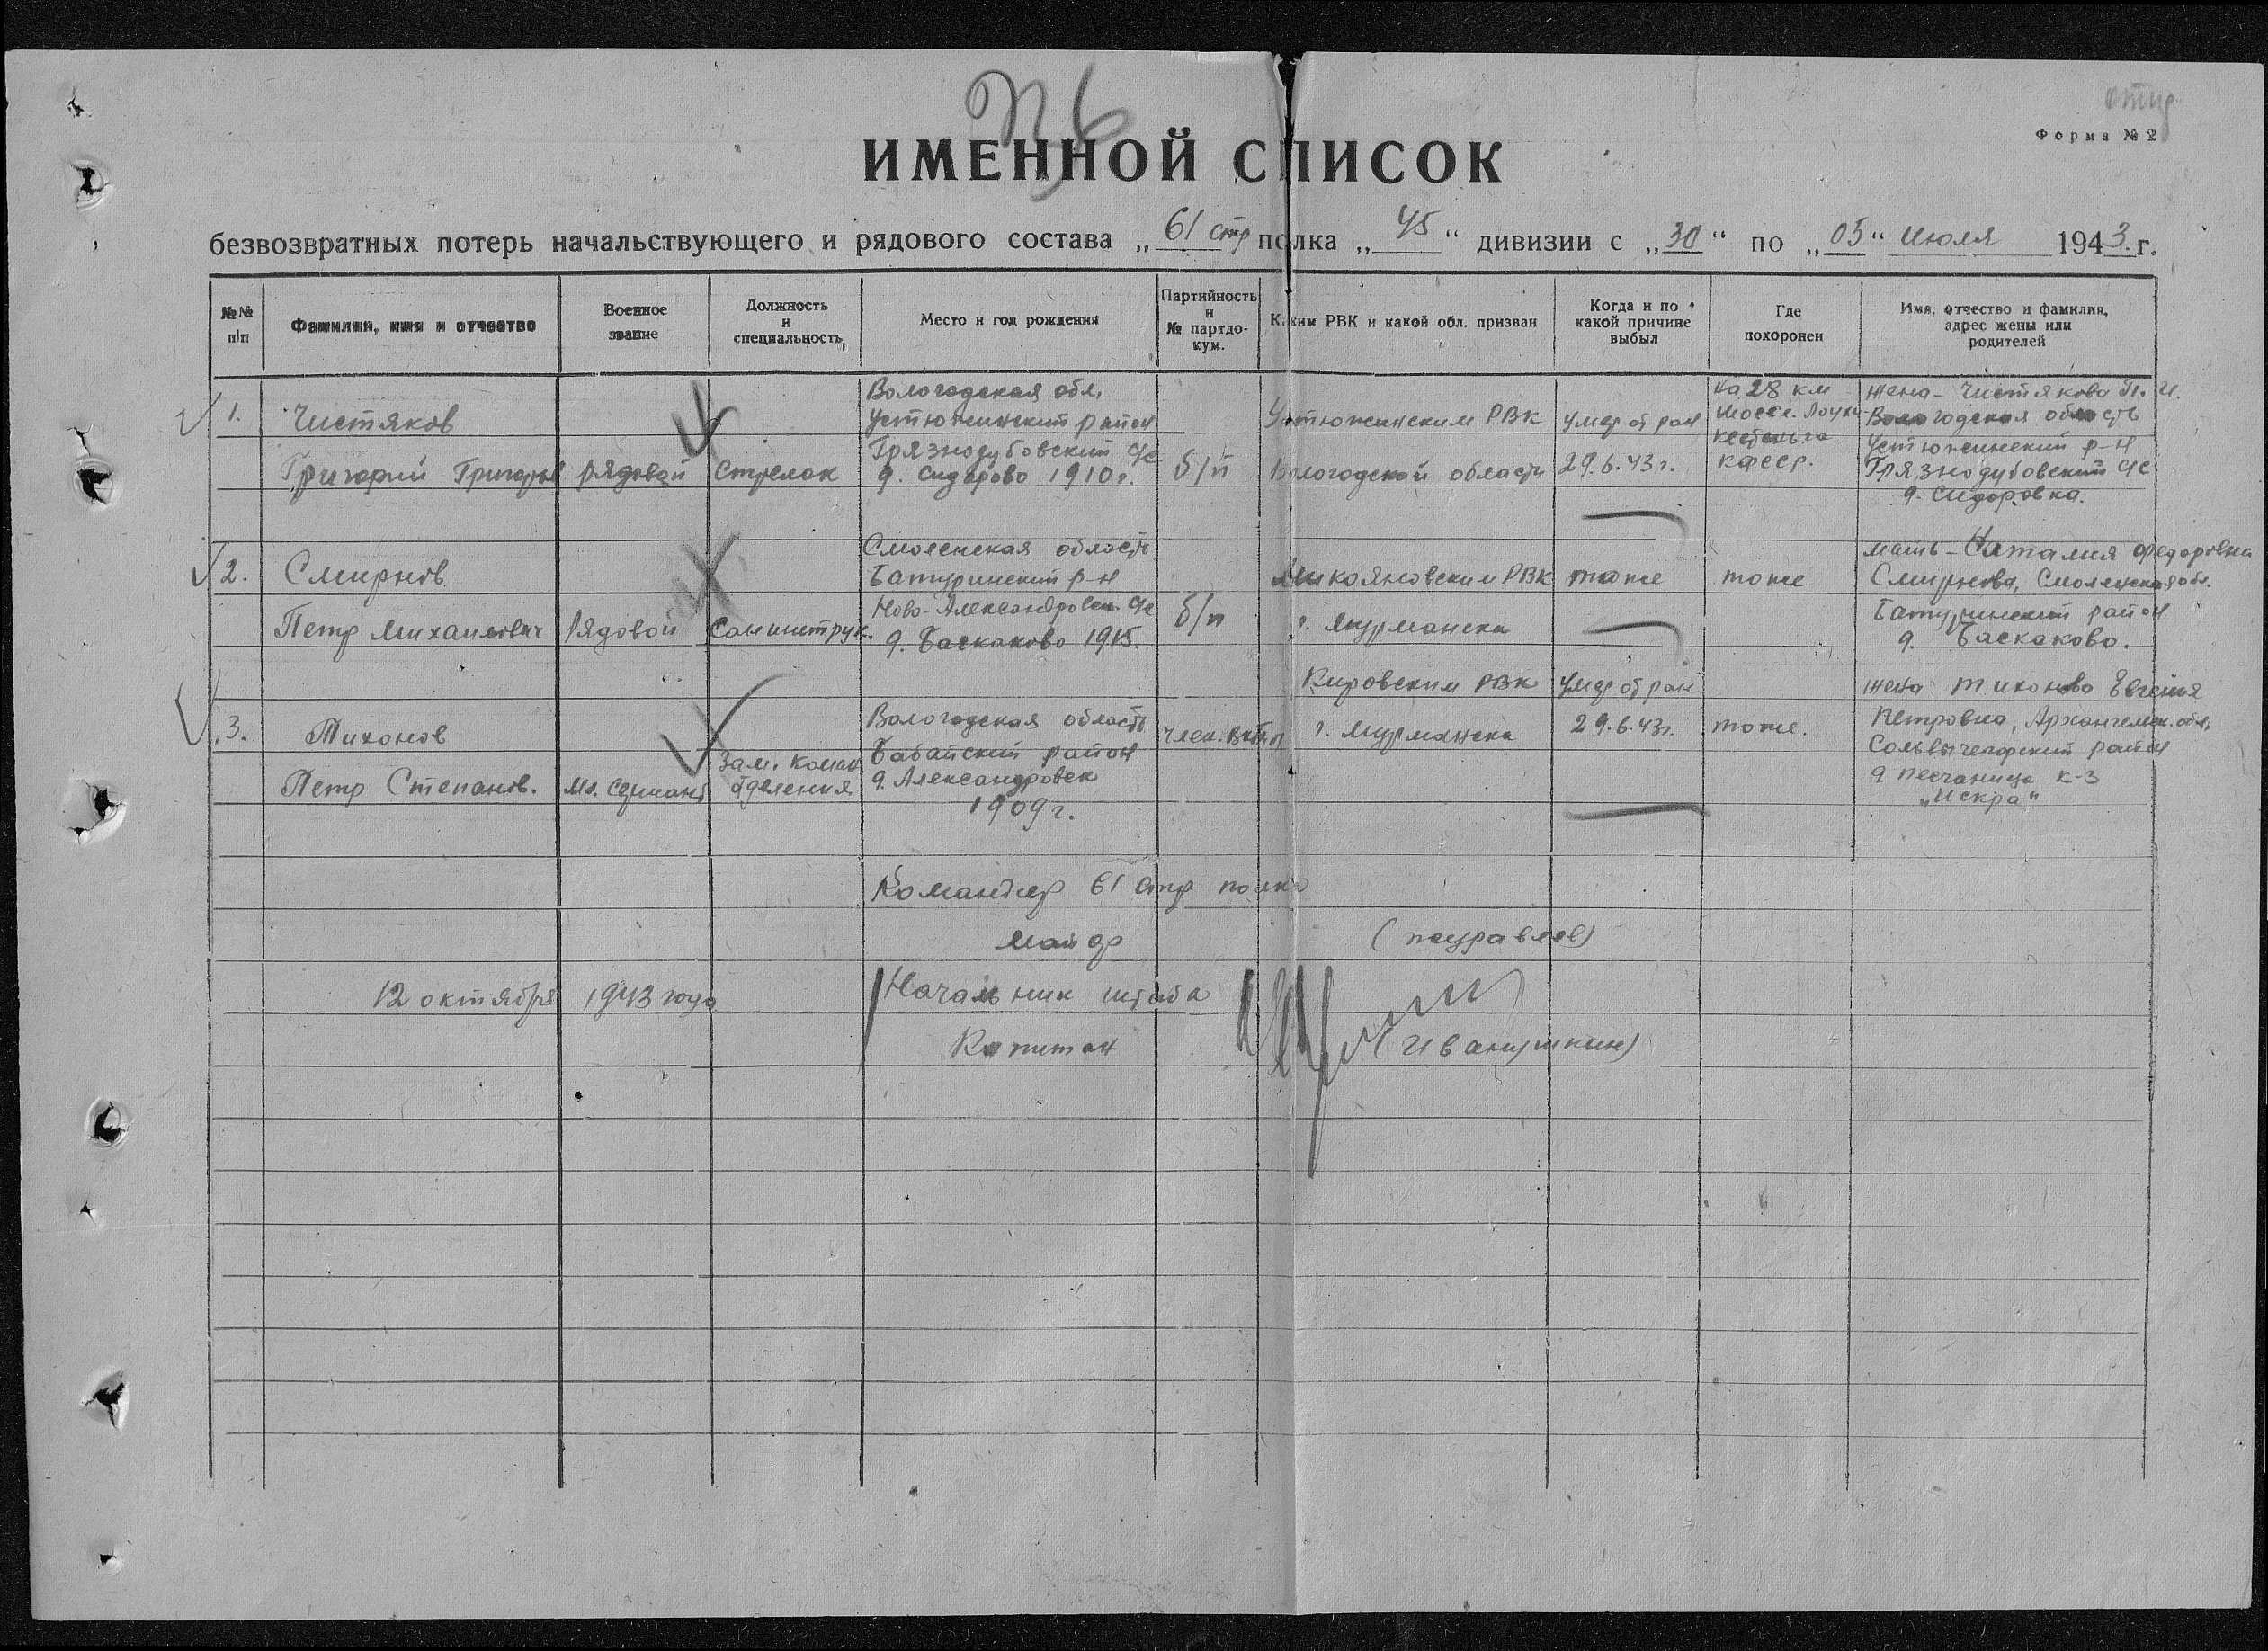 Форма № 2
ИМЕННОЙ СПИСОК
безвозвратных потерь начальствующего и рядового состава „61 стр полка „45“ дивизии с „30“ по „05“ июля 1943 г.
№№ п/п
Фамилия, имя и отчество
Военное звание
Должность и специальность
Место и год рождения
Партийность и № партдокум.
Каким РВК и какой обл. призван
Когда и по какой причине выбыл
Где похоронен
Имя, отчество и фамилия, адрес жены или родителей
1.
Чистяков
Григорий Григорьев
рядовой
стрелок
Вологодская обл.
Устюженский район
Грязнодубовский с/с
д. Сидорово 1910 г.
б/п
Устюженским РВК
Вологодской области
умер от ран
29.6.43 г.
на 28 км
шоссе Лоухи-
Кестеньга
КФССР.
жена - Чистякова П. И.
Вологодская область
Устюженский р-н
Грязнодубовский с/с
д. Сидоровка.
2.
Смирнов
Петр Михайлович
Рядовой
Санинструк.
Смоленская область
Батуринский р-н
Ново-Александровск. с/с
д. Баскаково 1915.
б/п
Микояновским РВК
г. Мурманска
тоже
тоже
мать - Наталия Федоровна
Смирнова, Смоленская обл.
Батуринский район
д. Баскаково.
3.
Тихонов
Петр Степанов.
Мл. сержант
Зам. коман.
отделения
Вологодская область
Бабаевский район
д. Александровск
1909 г.
член. ВКП/б/
Кировским РВК
г. Мурманска
умер от ран
29.6.43 г.
тоже.
жена Тихонова Евгения
Петровна, Архангельск. обл.
Сольвычегодский район
д. Песчаница к-з
„Искра“
Командир 61 стр полка
Майор (Журавлев)
12 октября 1943 года
Начальник штаба
Капитан (Иванушкин)